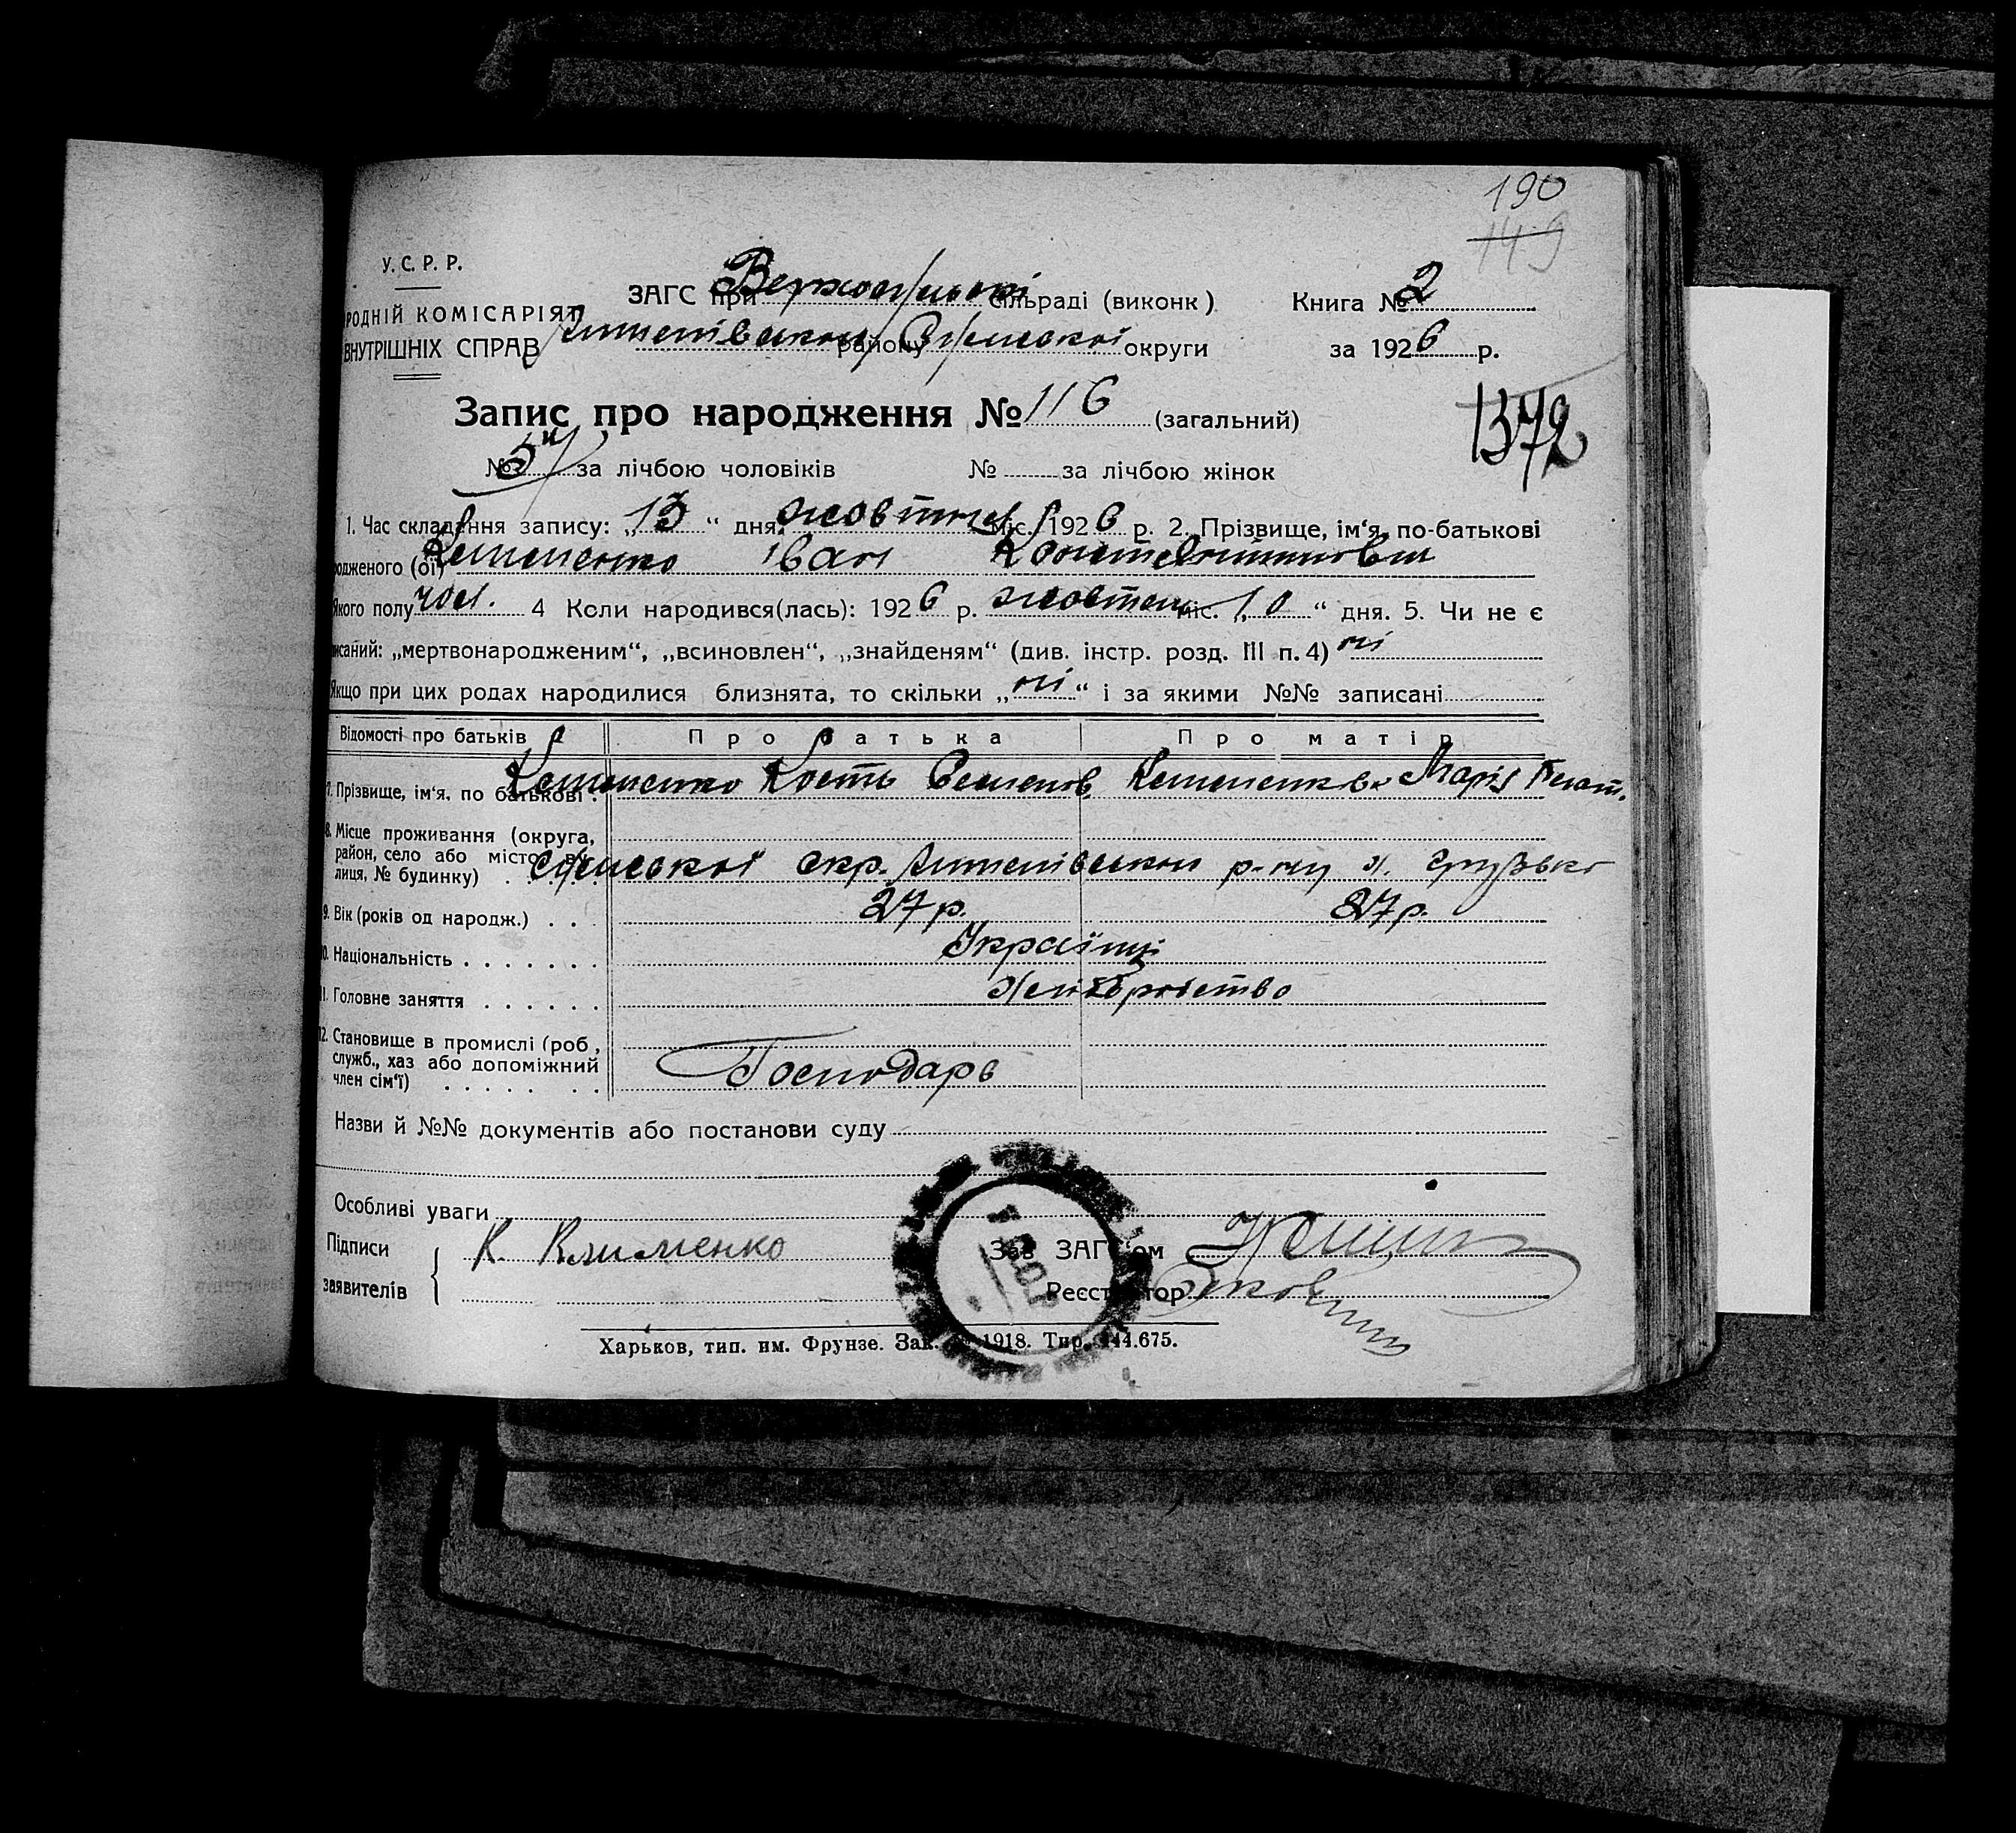 190
149
У. С. Р. Р.
РОДНІЙ КОМІСАРІЯТ
ВНУТРІШНІХ СПРАВ
ЗАГС при сільраді (виконк)
району Сумської округи
Книга № 2
за 1926 р.
Запис про народження № 116 (загальний)
1372
№ 57 за лічбою чоловіків № за лічбою жінок
1. Час складання запису: „13“ дня жовтня міс. 1926 р. 2. Прізвище, ім‘я, по-батькові
одженого (ої) Клименко Іван Константинович
Якого полу чол. 4 Коли народився(лась): 1926 р. жовтень міс. „10“ дня. 5. Чи не є
писаний: „мертвонародженим“, „всиновлен“, „знайденям“ (див. інстр. розд. III п. 4) ні
Якщо при цих родах народилися близнята, то скільки „ні“ і за якими №№ записані
Відомості про батьків Про батька Про матір
7. Прізвище, ім‘я, по батькові. Клименко Кость Семенов. Клименкова Марія
8. Місце проживання (округа,
район, село або місто, ву-
лиця, № будинку) Сумської окр. р-ну х. Грузьке
9. Вік (років од народж.) 27 р. 27 р.
10. Національність Українці
11. Головне заняття Хліборобство
12. Становище в промислі (роб,
служб., хаз або допоміжний
член сім‘ї) Господарь
Назви й №№ документів або постанови суду
Особливі уваги
Підписи К. Клименко Зав ЗАГС‘ом
заявителів Реєстратор
Харьков, тип. им. Фрунзе. Зак. № 1918. Тир. 444.675.